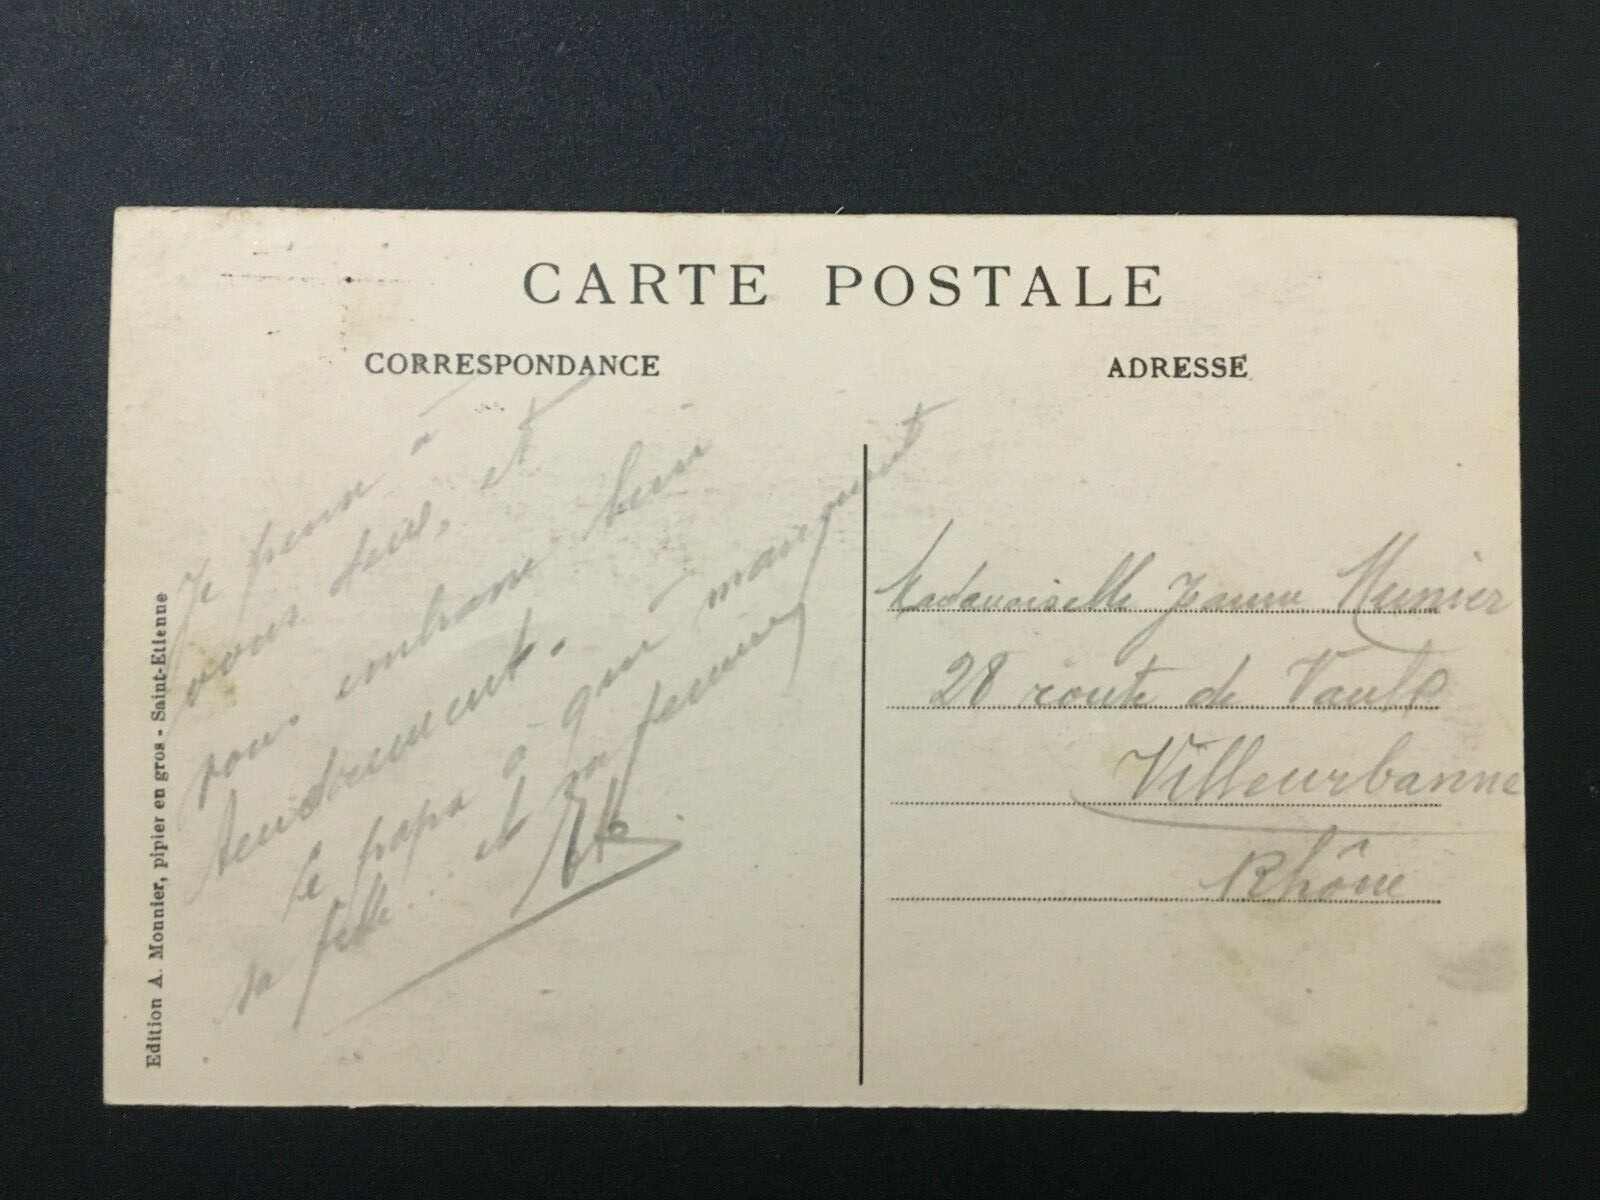 CARTE POSTALE
CORRESPONDANCE
ADRESSE
Je pense à
vous deux, et
vous embrasse bien
tendrement.
Le papa à qui manquent
sa fille et sa femme
Mademoiselle Jeanne Munier
28 route de Vaulx
Villeurbanne
Rhône
Edition A. Monnier, pipier en gros - Saint-Etienne